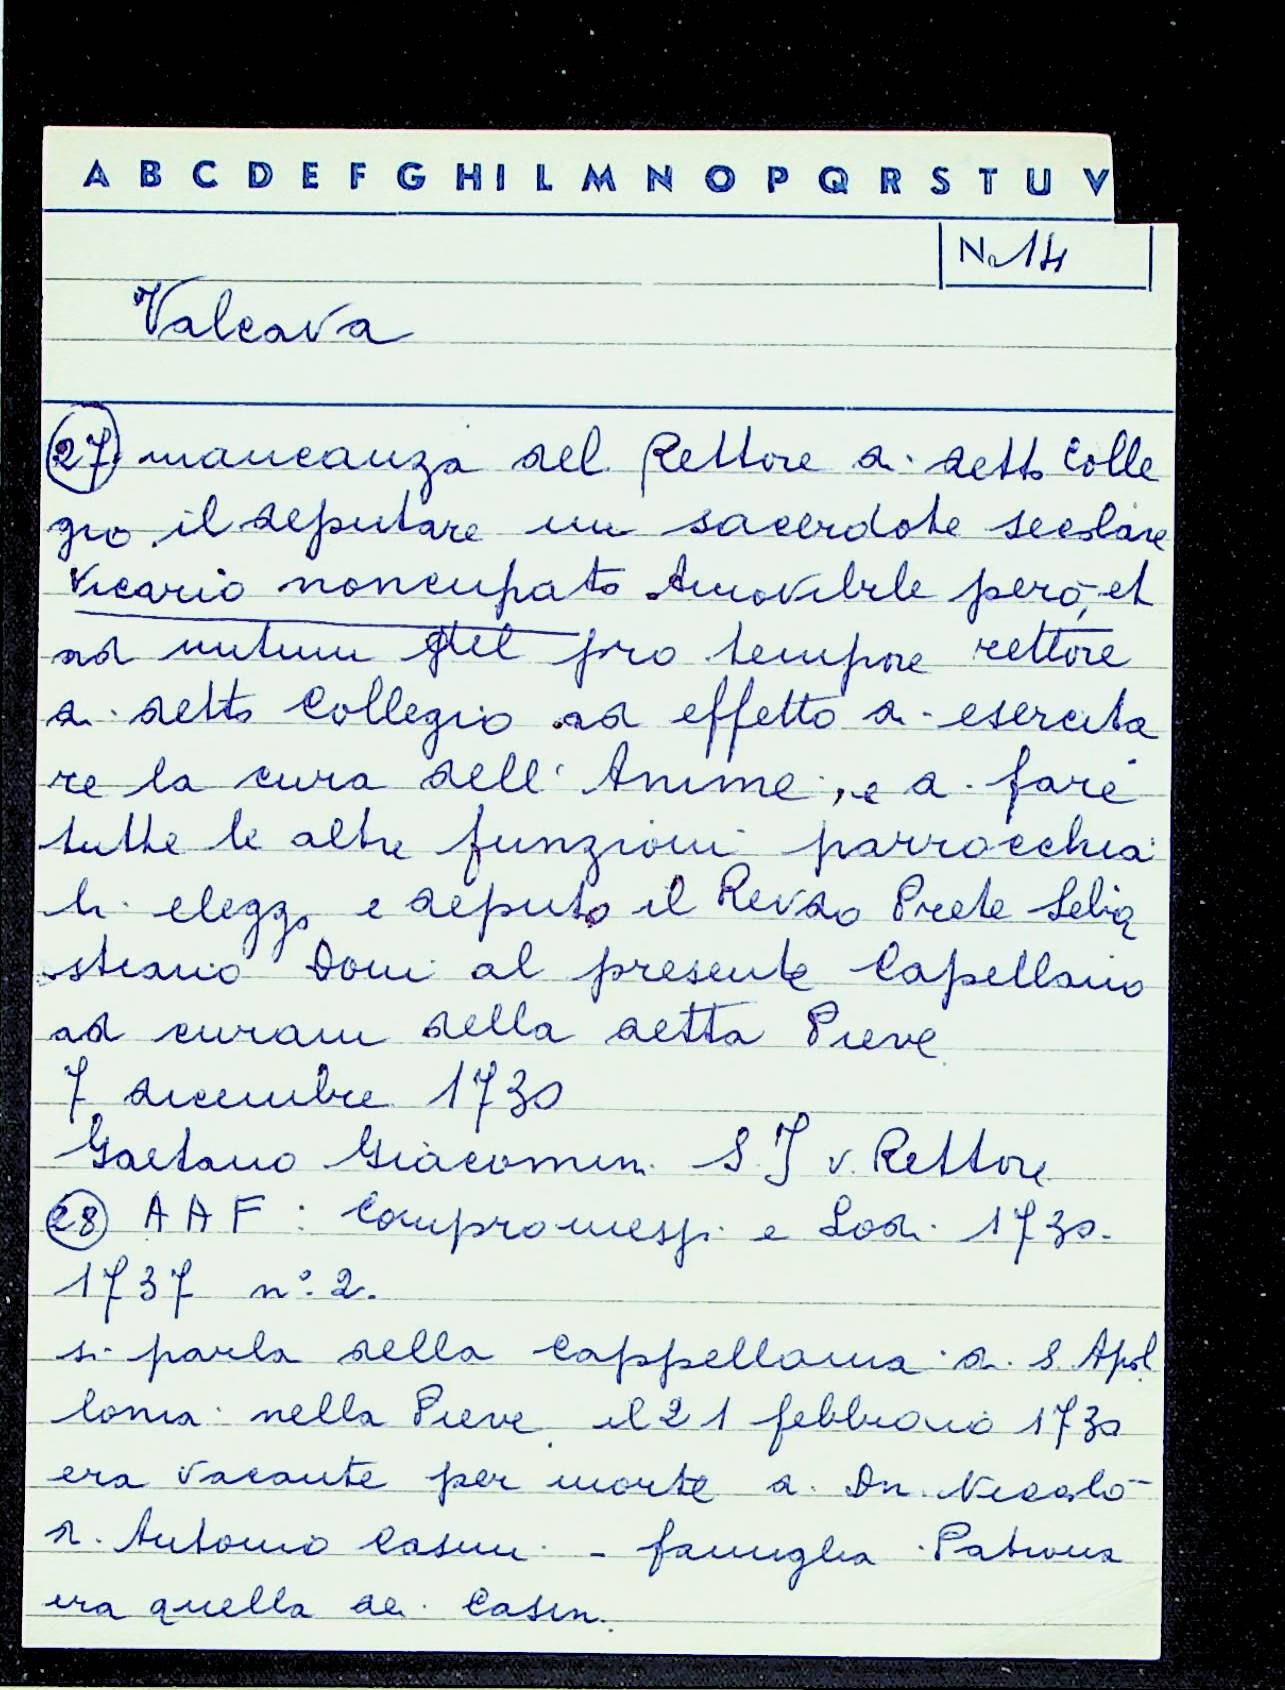 A B C D E F G H I L M N O P Q R S T U V
No 14
Valcava
27 mancanza del Rettore di detto Colle
gio il deputare un sacerdote secolare
vicario noncupato Amovibile però, et
ad nutum del pro tempore rettore
di detto Collegio ad effetto di esercita
re la cura dell'Anime, e di fare
tutte le altre funzioni parrocchia
li eleggo e deputo il Revdo Prete Seba
stiano Doni al presente Capellano
ad curam della detta Pieve
7 dicembre 1730
Gaetano Giacomini S.J v. Rettore
28 A A F : Compromessi e Lodi 1730-
1737 n° 2.
si parla della Cappellania di S. Apol
lonia nella Pieve il 21 febbraio 1730
era vacante per morte di Dn. Niccolò
d. Antonio Casini - famiglia Patrona
era quella dei Casini.